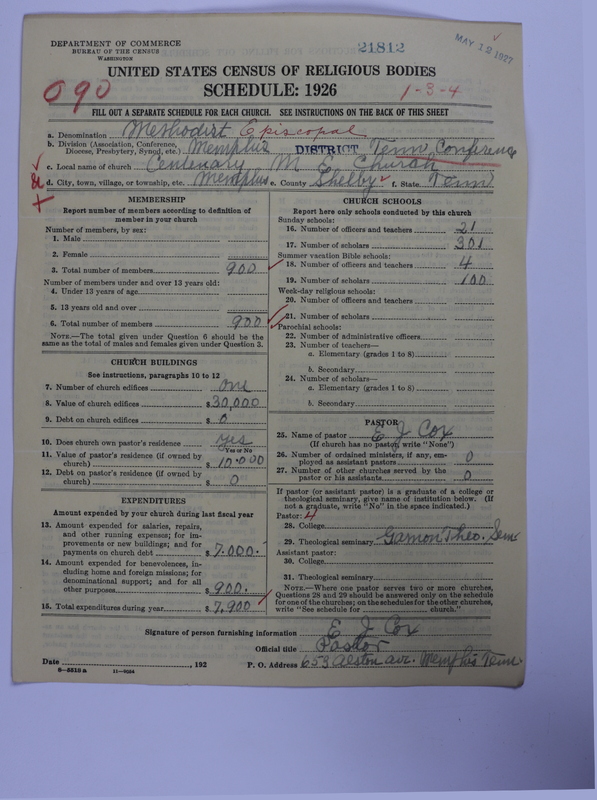 DEPARTMENT OF COMMERCE
BUREAU OF THE CENSUS
WASHINGTON
21812
MAY 12 1927
UNITED STATES CENSUS OF RELIGIOUS BODIES
SCHEDULE: 1926
090
1-3-4
FILL OUT A SEPARATE SCHEDULE FOR EACH CHURCH. SEE INSTRUCTIONS ON THE BACK OF THIS SHEET
a. Denomination Methodist Episcopal
b. Division (Association, Conference, Diocese, Presbytery, Synod, etc.) Memphis DISTRICT Tenn Conference
c. Local name of church Centenary M E Church
d. City, town, village, or township, etc. Memphis e. County Shelby f. State Tenn
MEMBERSHIP
Report number of members according to definition of
member in your church
Number of members, by sex:
1. Male
2. Female
3. Total number of members 900
Number of members under and over 13 years old:
4. Under 13 years of age
5. 13 years old and over
6. Total number of members 900
NOTE.—The total given under Question 6 should be the
same as the total of males and females given under Question 3.
CHURCH BUILDINGS
See instructions, paragraphs 10 to 12
7. Number of church edifices one
8. Value of church edifices $30,000
9. Debt on church edifices $ 0
10. Does church own pastor's residence yes
Yes or No
11. Value of pastor's residence (if owned by
church) $ 10.000
12. Debt on pastor's residence (if owned by
church) $ 0
EXPENDITURES
Amount expended by your church during last fiscal year
13. Amount expended for salaries, repairs,
and other running expenses; for im-
provements or new buildings; and for
payments on church debt $ 7.000.
14. Amount expended for benevolences, in-
cluding home and foreign missions; for
denominational support; and for all
other purposes $ 900.
15. Total expenditures during year $ 7,900
CHURCH SCHOOLS
Report here only schools conducted by this church
Sunday schools:
16. Number of officers and teachers 21
17. Number of scholars 301
Summer vacation Bible schools:
18. Number of officers and teachers 4
19. Number of scholars 100
Week-day religious schools:
20. Number of officers and teachers
21. Number of scholars
Parochial schools:
22. Number of administrative officers
23. Number of teachers—
a. Elementary (grades 1 to 8)
b. Secondary
24. Number of scholars—
a. Elementary (grades 1 to 8)
b. Secondary
PASTOR
25. Name of pastor E J Cox
(If church has no pastor, write "None")
26. Number of ordained ministers, if any, em-
ployed as assistant pastors 0
27. Number of other churches served by the
pastor or his assistants 0
If pastor (or assistant pastor) is a graduate of a college or
theological seminary, give name of institution below. (If
not a graduate, write "No" in the space indicated.)
Pastor: 4
28. College
29. Theological seminary Gamon Theo. Sem
Assistant pastor:
30. College
31. Theological seminary
NOTE.—Where one pastor serves two or more churches,
Questions 28 and 29 should be answered only on the schedule
for one of the churches; on the schedules for the other churches,
write "See schedule for church."
Signature of person furnishing information E J Cox
Official title Pastor
Date , 192 P. O. Address 653 Alston ave. Memphis Tenn.
8—5518 a 11—9034